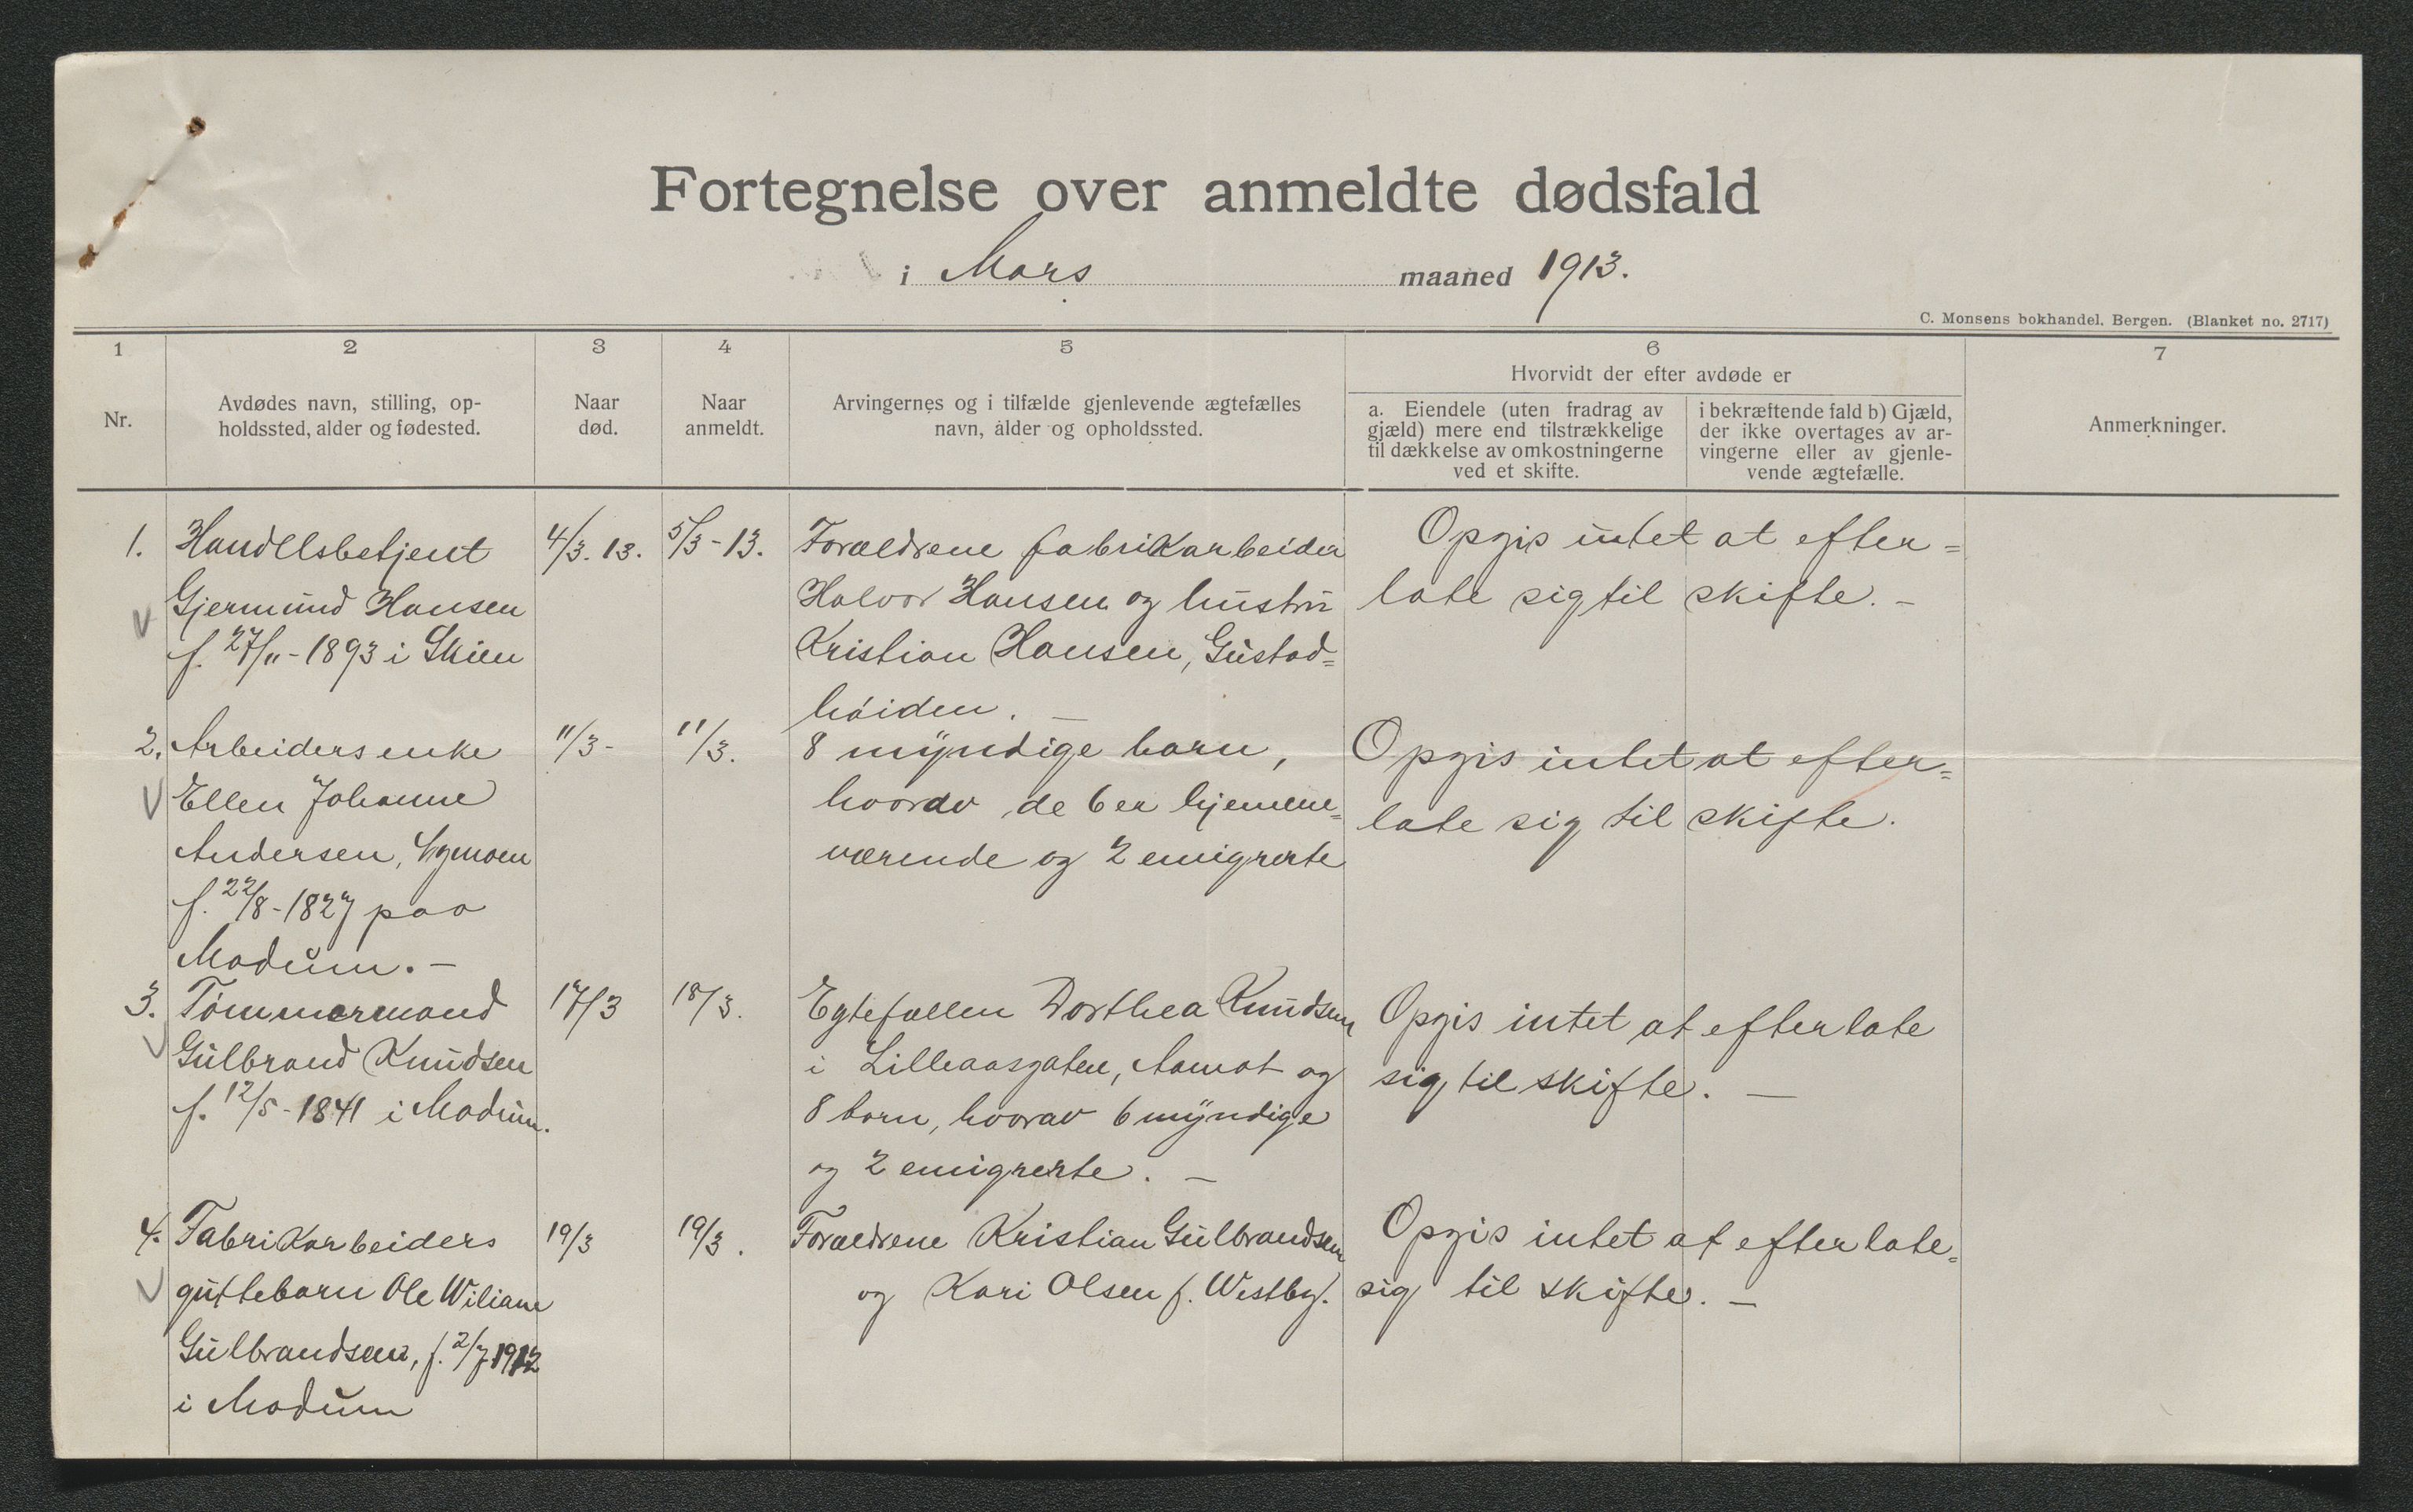 Fortegnelse over anmeldte dødsfald
i Mars maaned 1913.
C. Monsens bokhandel, Bergen. (Blanket no. 2717)
1
Nr.
2
Avdødes navn, stilling, op-
holdssted, alder og fødested.
3
Naar
død.
4
Naar
anmeldt.
5
Arvingernes og i tilfælde gjenlevende ægtefælles
navn, alder og opholdssted.
6
Hvorvidt der efter avdøde er
a. Eiendele (uten fradrag av
gjæld) mere end tilstrækkelige
til dækkelse av omkostningerne
ved et skifte.
i bekræftende fald b) Gjæld,
der ikke overtages av ar-
vingerne eller av gjenle-
vende ægtefælle.
7
Anmerkninger.
1.
Handelsbetjent
Gjermund Hansen
f. 27/11-1893 i Skien
4/3.13.
5/3-13.
Forældrene fabrikarbeider
Halvor Hansen og hustru
Kristian Hansen, Gustad=
høiden. —
Opgis intet at efter=
late sig til skifte. —
2.
Arbeiders enke
Ellen Johanne
Andersen,
f. 22/8-1827 paa
Modum. —
11/3-
11/3.
8 myndige barn,
hvorav de 6 er hjemme=
værende og 2 emigrerte
Opgis intet at efter=
late sig til skifte.
3.
Tømmermand
Gulbrand Knudsen
f. 12/5-1841 i Modum.
17/3
18/3.
Egtefællen Dorthea Knudsen
i Lilleaasgaten, Aamot og
8 barn, hvorav 6 myndige
og 2 emigrerte. —
Opgis intet at efterlate
sig til skifte. —
4.
Fabrikarbeiders
guttebarn Ole Wiliam
Gulbrandsen, f. 2/7 1912
i Modum
19/3
19/3.
Forældrene Kristian Gulbrandsen
og Kari Olsen f. Westby.
Opgis intet at efterlate=
sig til skifte. —